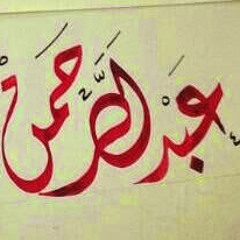 عَبْدُ الرَّحمٰنْ